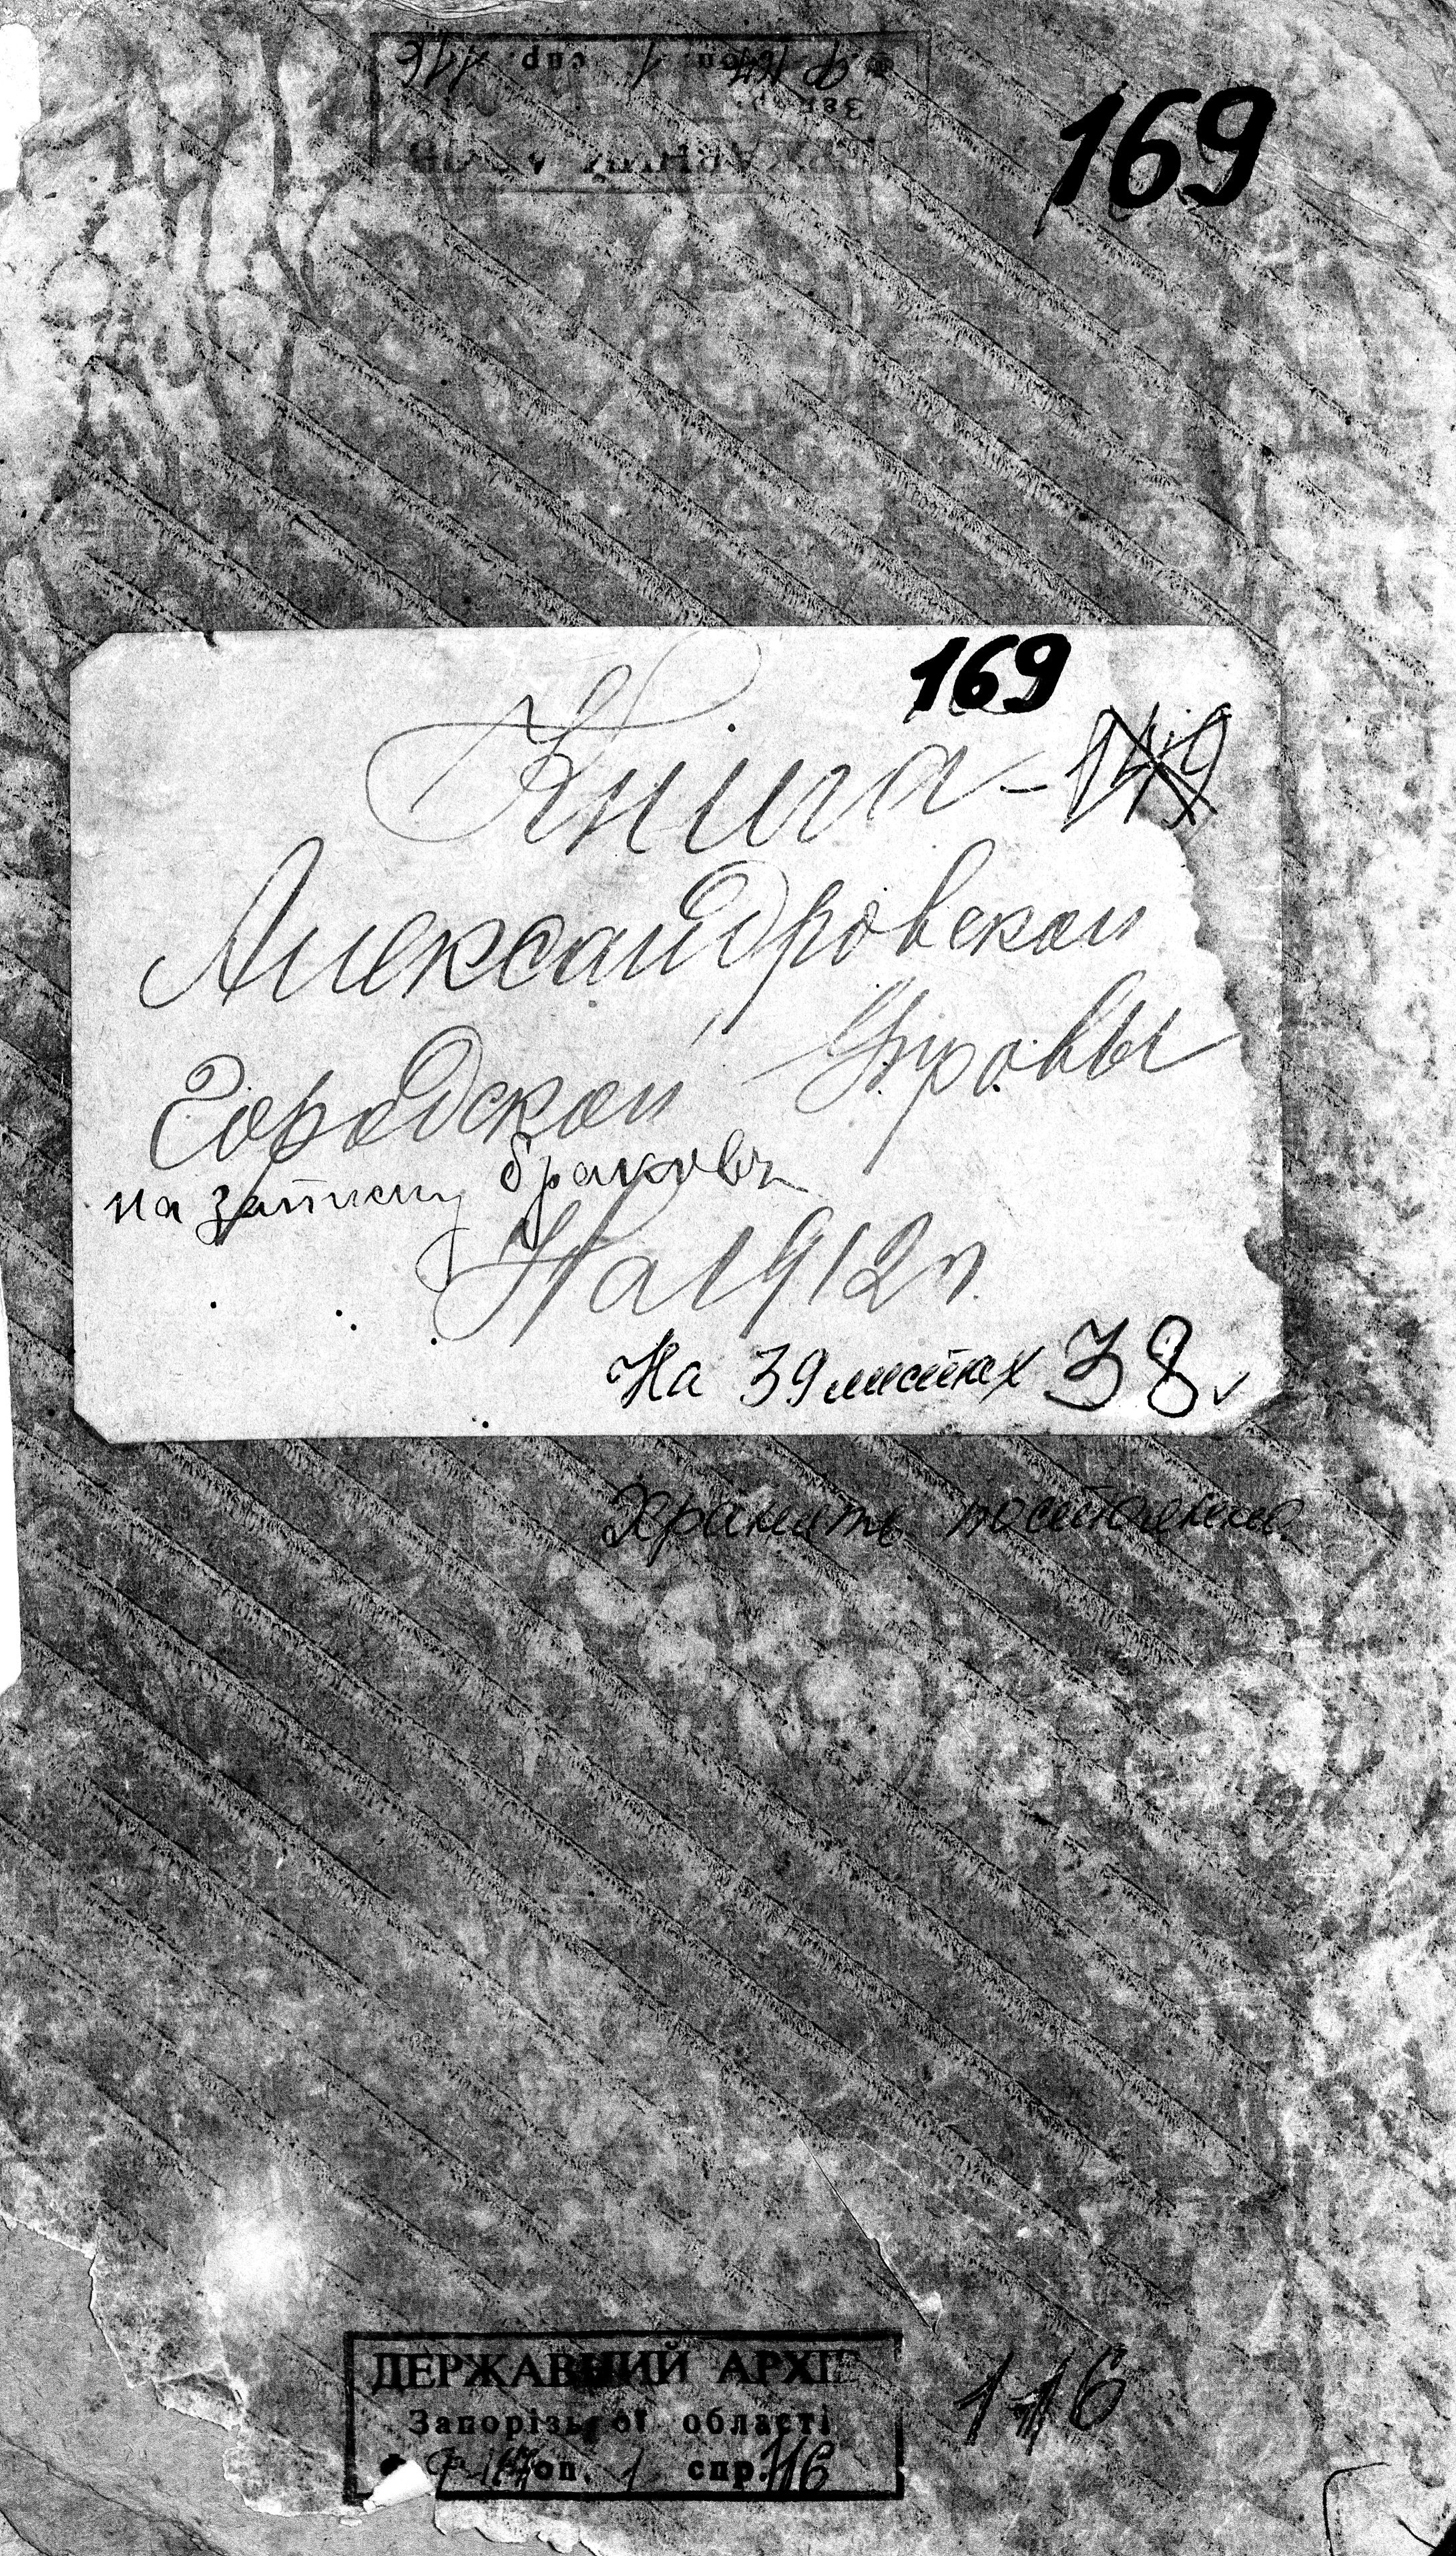 169
169
Книга - 149
Александровской
Городской Управы
на запись браковъ
На 1912 г.
На 39 листах 38
Хранить постоянно
116
ДЕРЖАВНИЙ АРХІ
Запорізької області
оп. 1 спр. 116